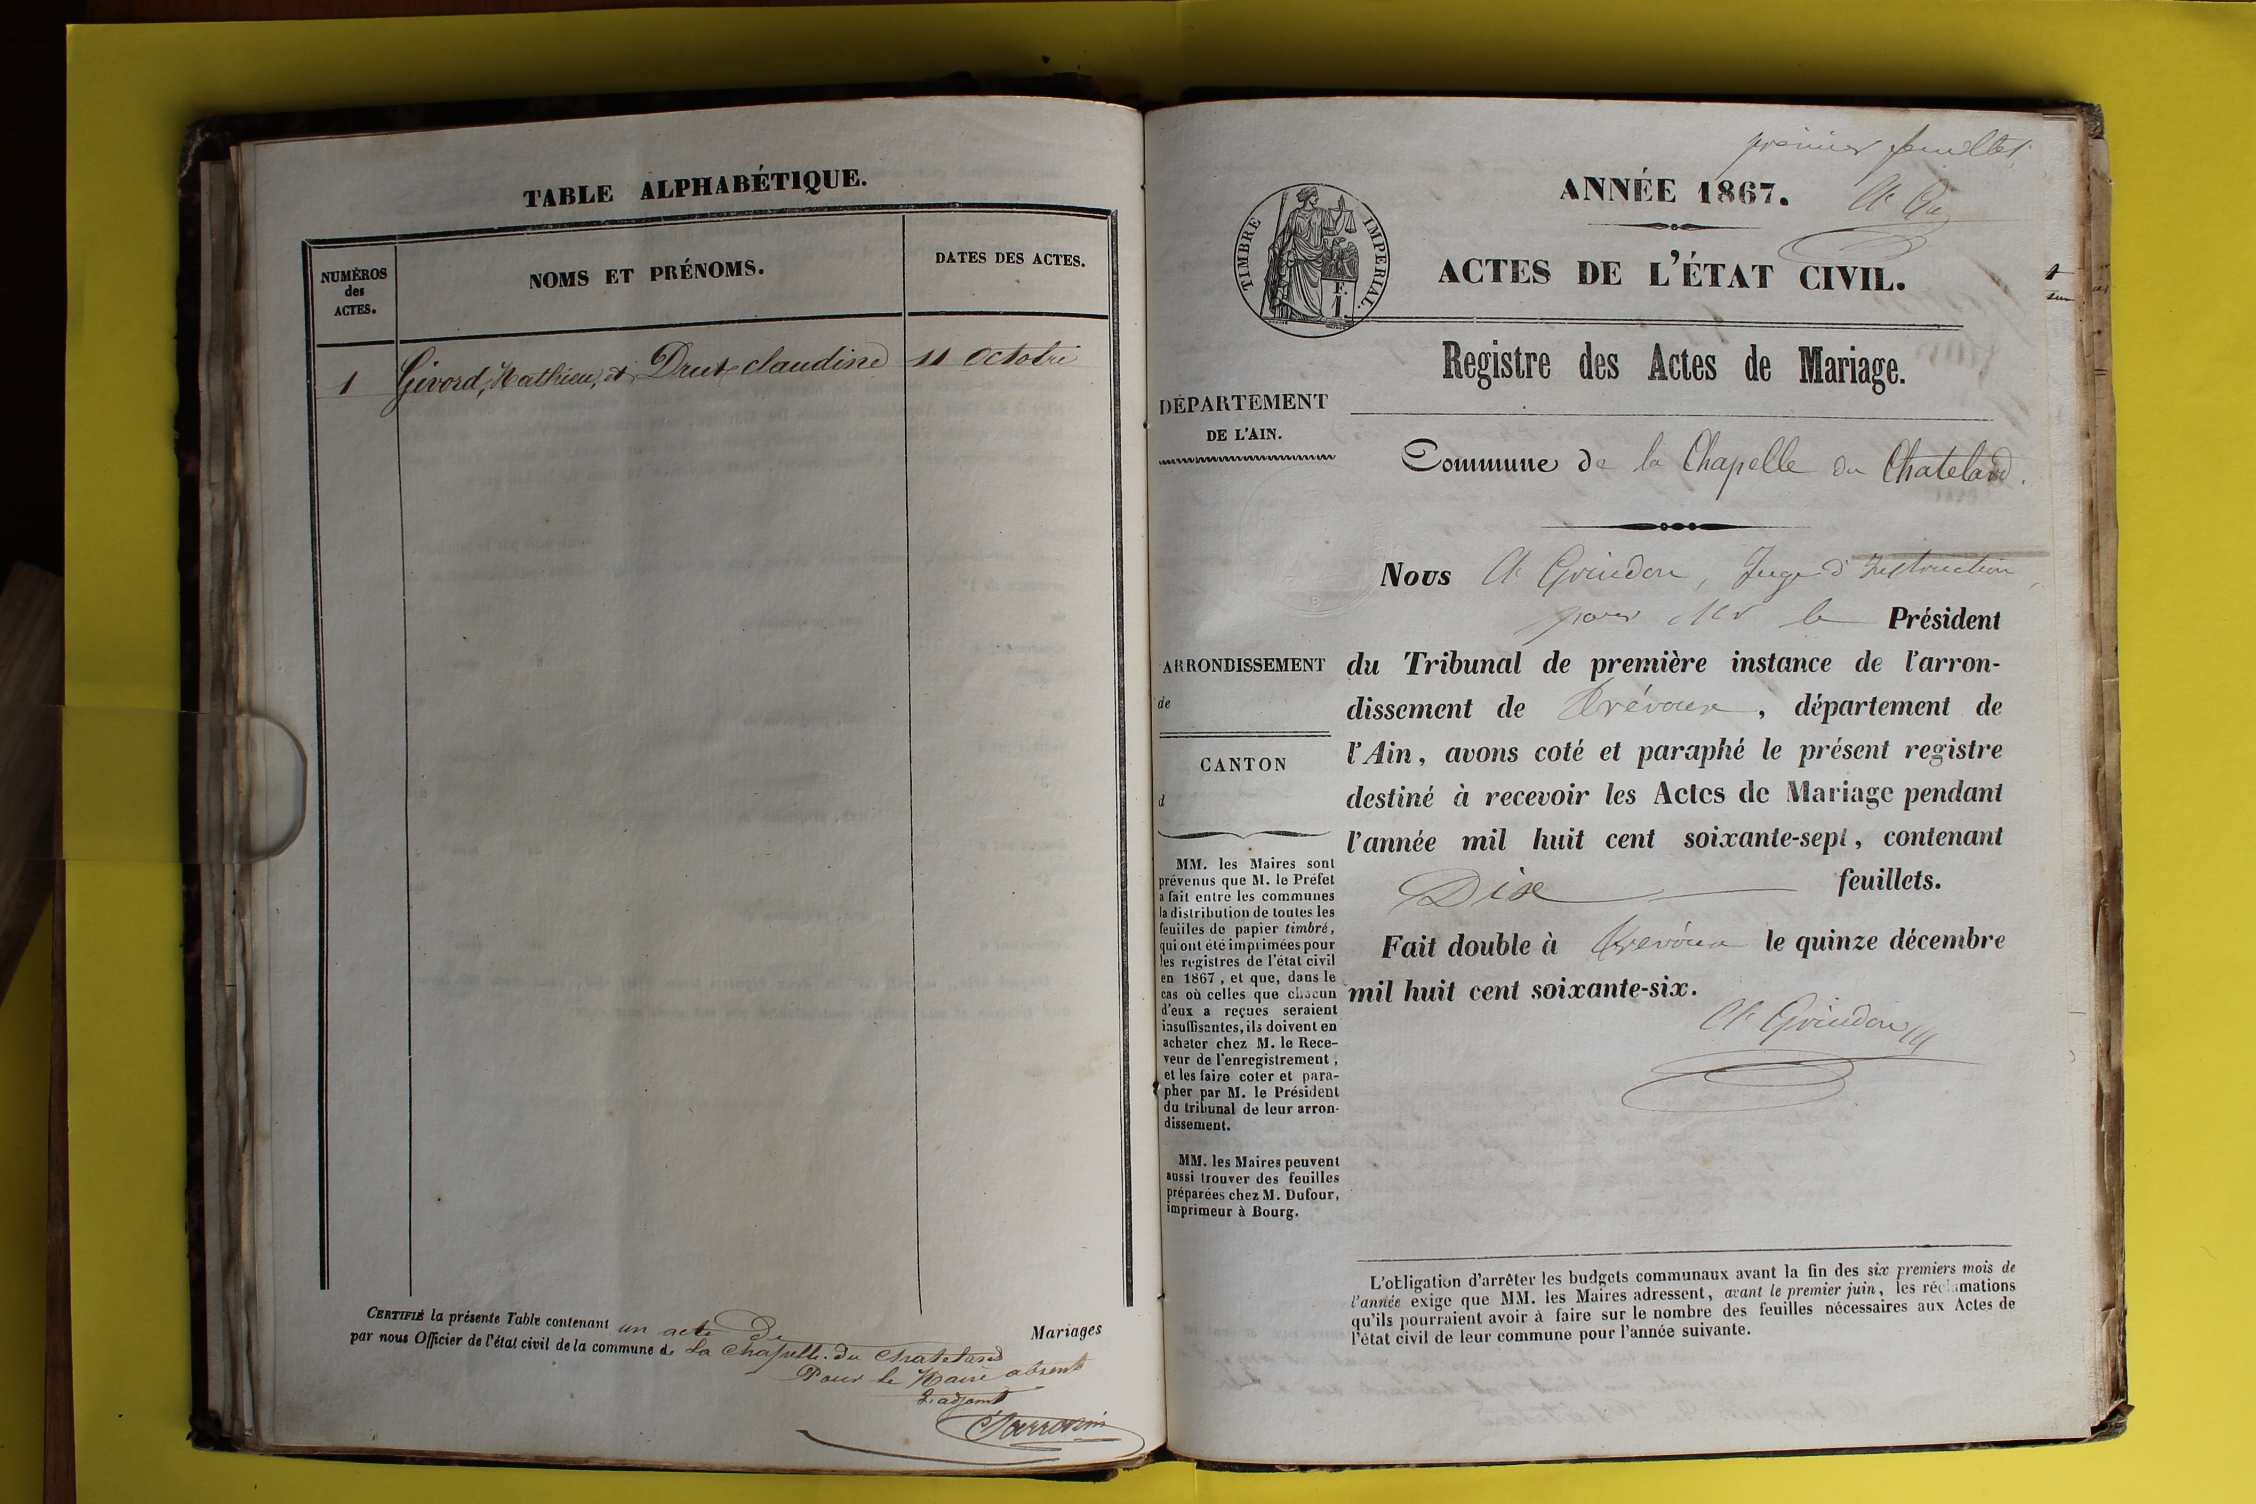 TABLE ALPHABÉTIQUE.
NUMÉROS
des
ACTES.
NOMS ET PRÉNOMS.
DATES DES ACTES.
1 Givord, Mathieu, et Drut claudine 11 Octobre
CERTIFIÉ la présente Table contenant un acte de Mariages
par nous Officier de l'état civil de la commune de La Chapelle du Chatelard
Pour le Maire absent
L'adjoint
premier feuillet
ANNÉE 1867.
TIMBRE IMPERIAL.
F.
1.
ACTES DE L'ÉTAT CIVIL.
Registre des Actes de Mariage.
DÉPARTEMENT
DE L'AIN.
Commune de la Chapelle du Chatelard.
Nous Ch Grindon, Juge d'Instruction,
pour Mr le Président
ARRONDISSEMENT
de
CANTON
d
du Tribunal de première instance de l'arron-
dissement de Trévoux, département de
l'Ain, avons coté et paraphé le présent registre
destiné à recevoir les Actes de Mariage pendant
l'année mil huit cent soixante-sept, contenant
Dix feuillets.
Fait double à Trévoux le quinze décembre
mil huit cent soixante-six.
Ch Grindon
MM. les Maires sont
prévenus que M. le Préfet
a fait entre les communes
la distribution de toutes les
feuilles de papier timbré,
qui ont été imprimées pour
les registres de l'état civil
en 1867, et que, dans le
cas où celles que chacun
d'eux a reçues seraient
insuffisantes, ils doivent en
acheter chez M. le Rece-
veur de l'enregistrement,
et les faire coter et para-
pher par M. le Président
du tribunal de leur arron-
dissement.
MM. les Maires peuvent
aussi trouver des feuilles
préparées chez M. Dufour,
imprimeur à Bourg.
L'obligation d'arrêter les budgets communaux avant la fin des six premiers mois de
l'année exige que MM. les Maires adressent, avant le premier juin, les réclamations
qu'ils pourraient avoir à faire sur le nombre des feuilles nécessaires aux Actes de
l'état civil de leur commune pour l'année suivante.